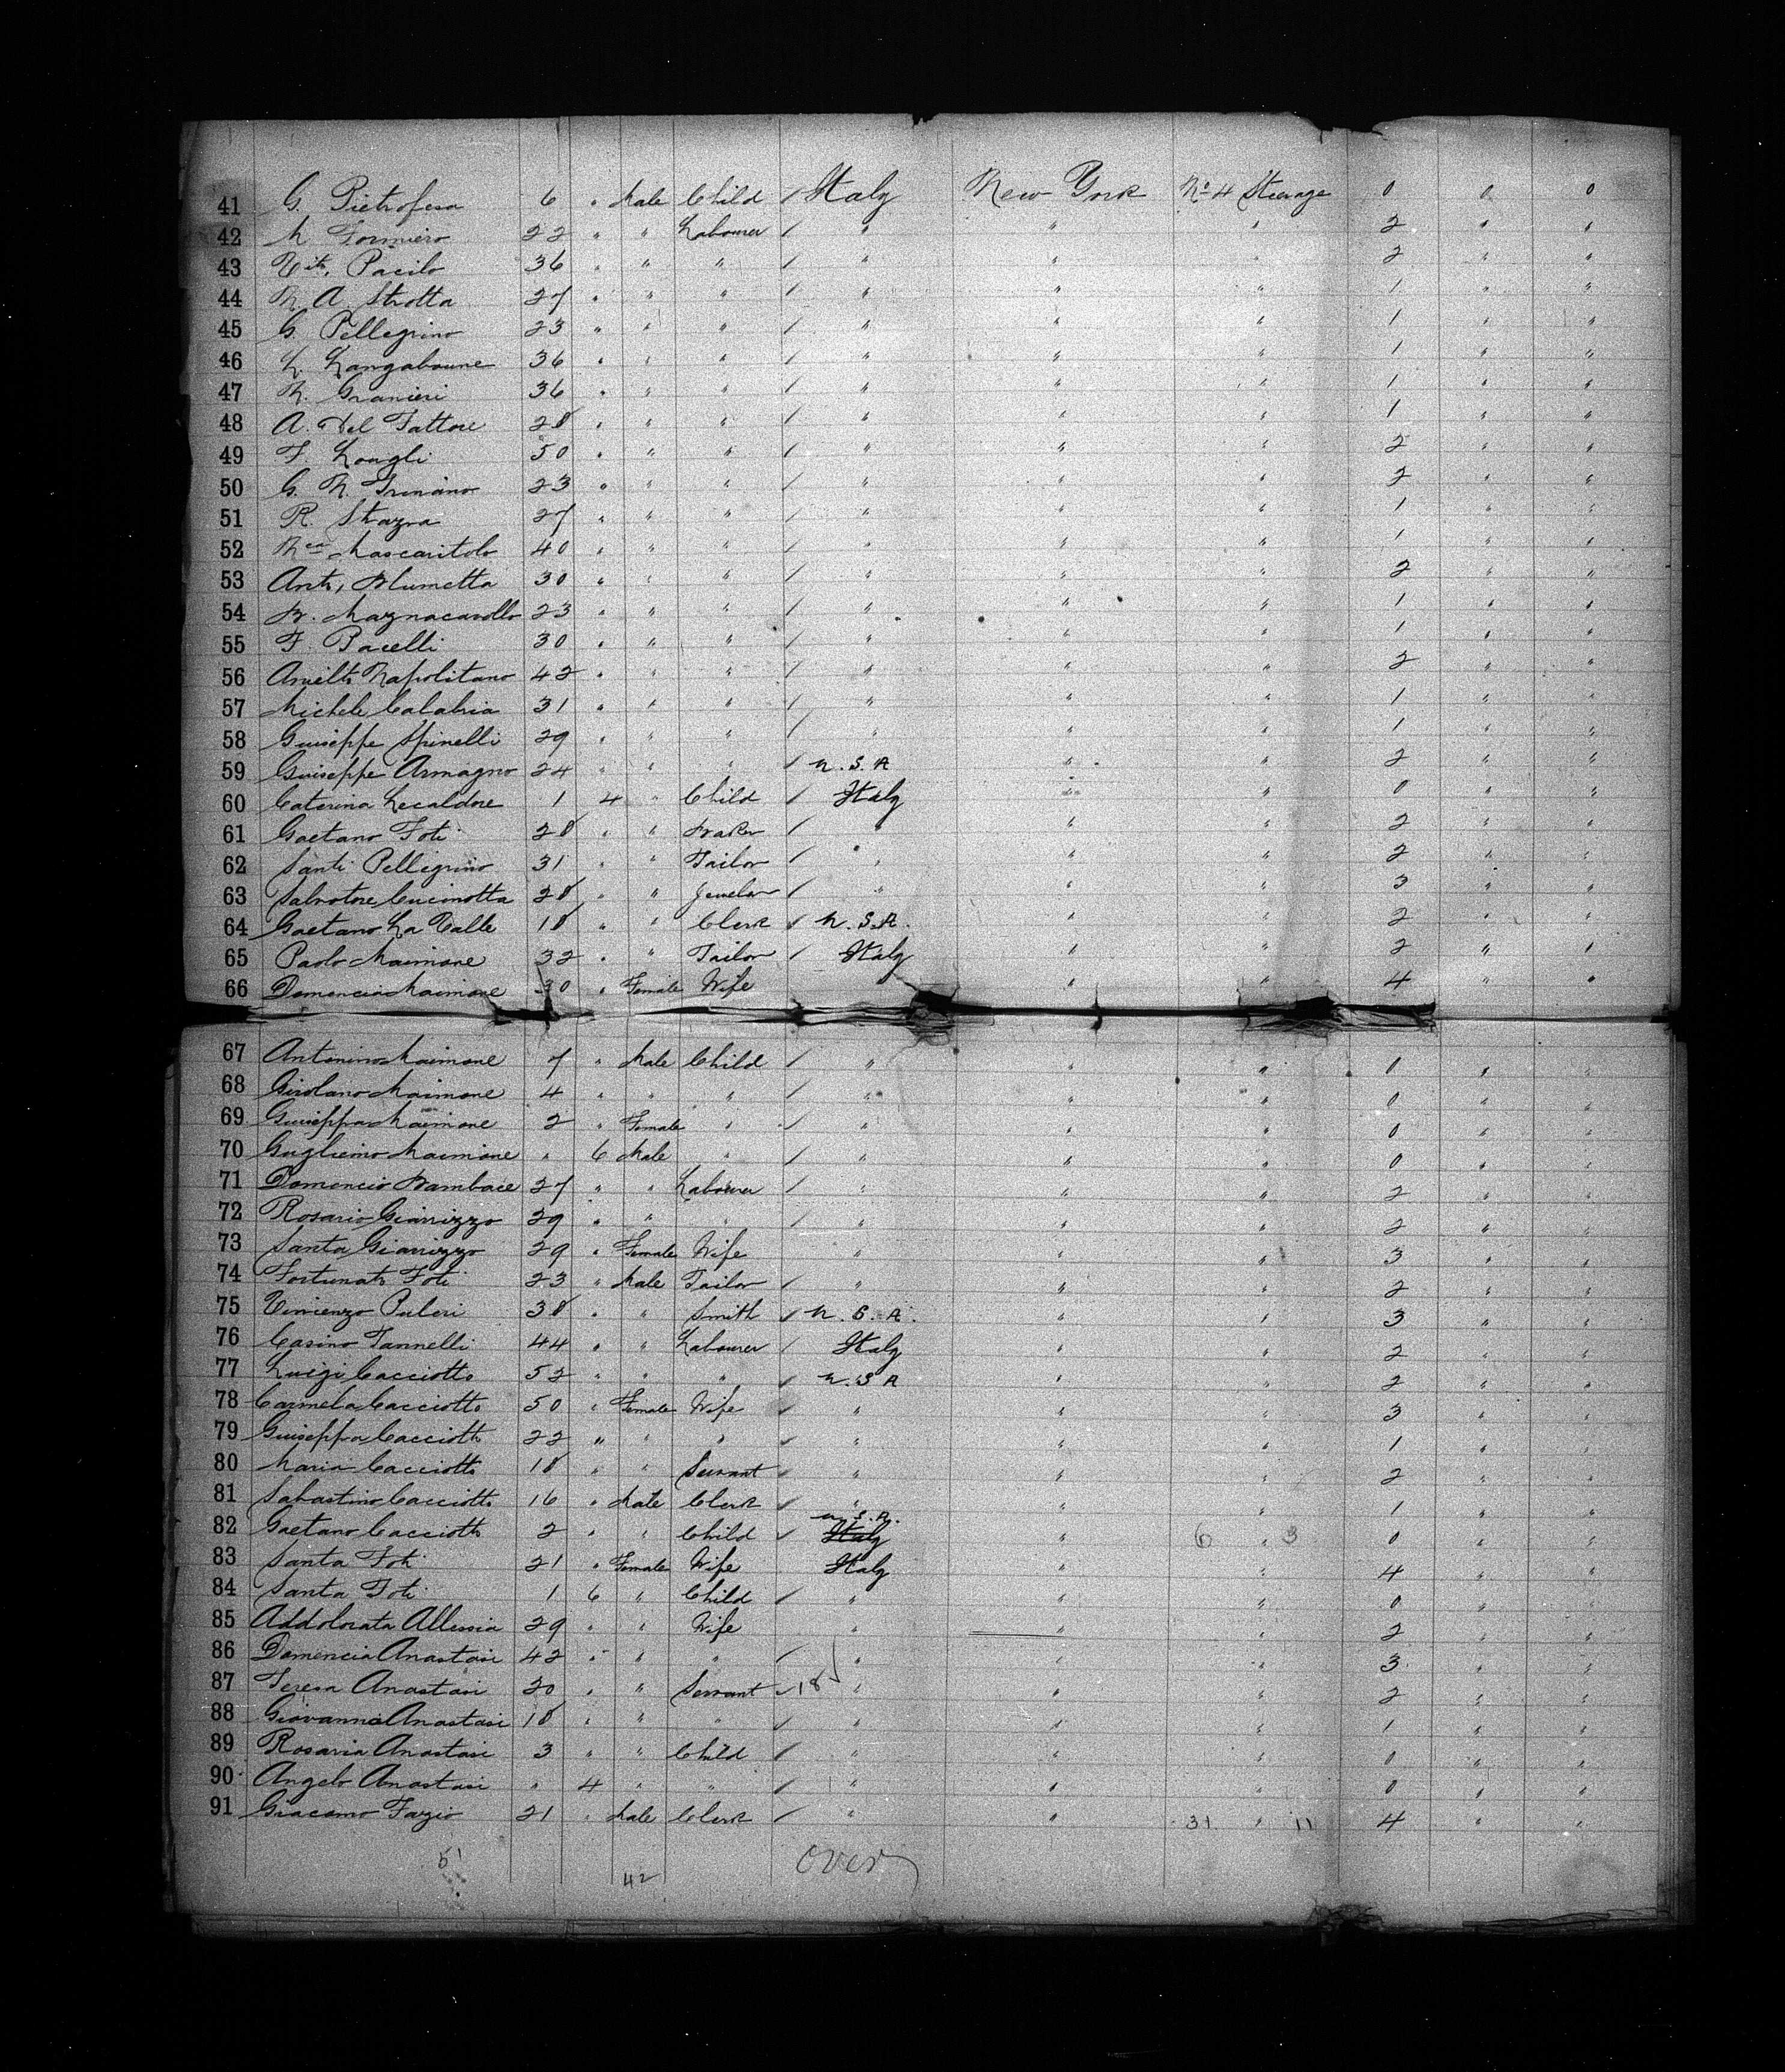 41 G. Pietrofesa 6 " Male Child / Italy New York No 4 Steerage 0 0 0
42 M. Formiero 22 " " Labourer / " " " 2 " "
43 Vito Pacilo 36 " " " / " " " 2 " "
44 N. A. Strotta 27 " " " / " " " 1 " "
45 G. Pellegrino 23 " " " / " " " 1 " "
46 L. Langaboune 36 " " " / " " " 1 " "
47 N. Granieri 36 " " " / " " " 1 " "
48 A. Del Fattore 28 " " " / " " " 1 " "
49 F. Longli 50 " " " / " " " 2 " "
50 G. N. 23 " " " / " " " 2 " "
51 R. Strazra 27 " " " / " " " 1 " "
52 Mascaritolo 40 " " " / " " " 1 " "
53 Anto, Blumetta 30 " " " / " " " 2 " "
54 B. Magnacavollo 23 " " " / " " " 1 " "
55 F. Pacelli 30 " " " / " " " 1 " "
56 Napolitano 42 " " " / " " " 2 " "
57 Michele Calabria 31 " " " / " " " 1 " "
58 Guiseppe Spinelli 29 " " " / " " " 1 " "
59 Guiseppe Armagno 24 " " " / U.S.A " " 2 " "
60 Caterina Lecaldore 1 4 " Child / Italy " " 0 " "
61 Gaetano Foti 28 " " Baker / " " " 2 " "
62 Santi Pellegrino 31 " " Tailor / " " " 2 " "
63 Salvatore Cucinotta 28 " " Jeweler / " " " 3 " "
64 Gaetano La Valle 18 " " Clerk / U.S.A. " " 2 " "
65 Paolo Maimone 32 " " Tailor / Italy " " 2 " "
66 Domencia Maimone 30 " Female Wife " " 4 " "
67 Antonino Maimone 7 " Male Child / " " " 0 " "
68 Girolano Maimone 4 " " " / " " " 0 " "
69 Guiseppa Maimone 2 " Female " / " " " 0 " "
70 Guglieino Maimone " 6 Male " / " " " 0 " "
71 Domencio Bambace 27 " " Labourer / " " " 2 " "
72 Rosario Giarrizzo 29 " " " / " " " 2 " "
73 Santa Giarrizzo 29 " Female Wife " " " 3 " "
74 Fortunato Foti 23 " Male Tailor / " " " 2 " "
75 Vincenzo Puleri 38 " " Smith / U.S.A. " " 3 " "
76 Casino Iannelli 44 " " Labourer / Italy " " 2 " "
77 Luigi Cacciotto 52 " " " / U.S A " " 2 " "
78 Carmela Cacciotto 50 " Female Wife / " " " 3 " "
79 Guiseppa Cacciotto 22 " " " / " " " 1 " "
80 Maria Cacciotto 18 " " Servant / " " " 2 " "
81 Sabastino Cacciotto 16 " Male Clerk / " " " 1 " "
82 Gaetano Cacciotto 2 " " Child / U.S.A. Italy " 6 " 3 0 " "
83 Santa Foti 21 " Female Wife Italy " " 4 " "
84 Santa Foti 1 6 " Child / " " " 0 " "
85 Addolorata Allessia 29 " " Wife " " " 2 " "
86 Domencia Anastasi 42 " " " / " " " 3 " "
87 Teresa Anastasi 20 " " Servant / 18 " " " 2 " "
88 Giovanna Anastasi 18 " " " / " " " 1 " "
89 Rosaria Anastasi 3 " " Child / " " " 0 " "
90 Angelo Anastasi " 4 " " / " " " 0 " "
91 Giacomo Fazio 21 " Male Clerk / " " 31 " 11 4 " "
51 42 over